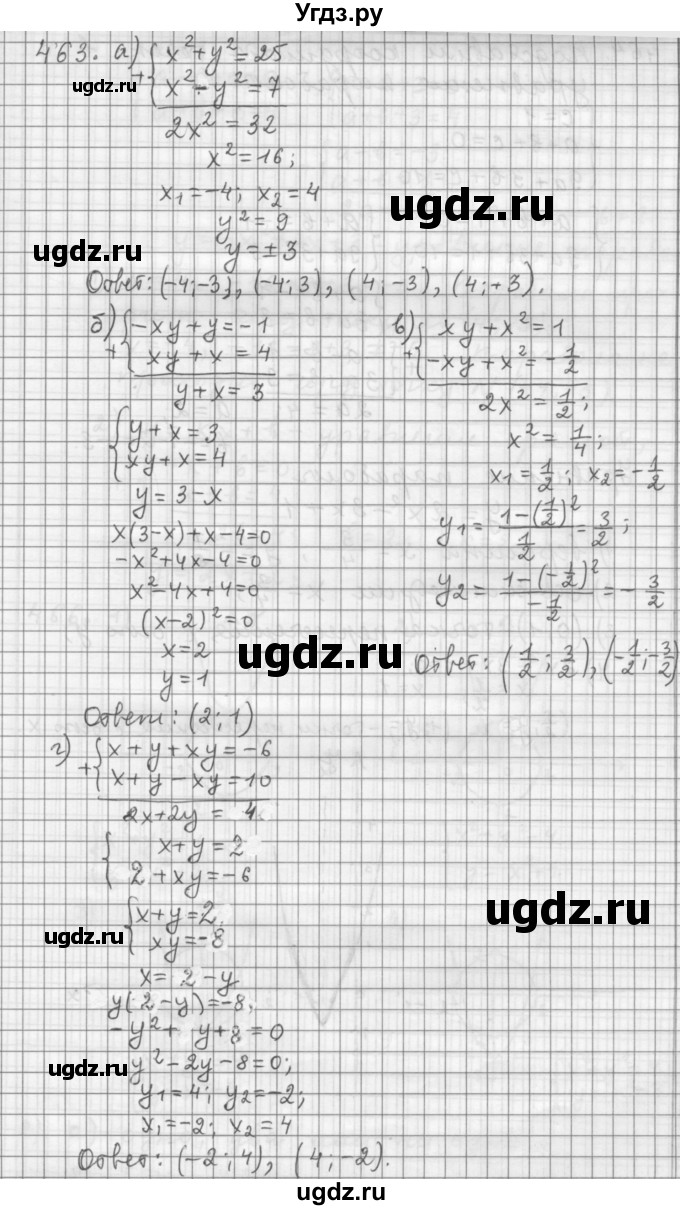 Угдз.ру
463. а) { x² + y² = 25
+ x² - y² = 7
2x² = 32
x² = 16;
x₁ = -4; x₂ = 4
y² = 9
y = ± 3
Ответ: (-4;-3), (-4;3), (4;-3), (4;+3).
б) { -xy + y = -1
+ xy + x = 4
y + x = 3
{ y + x = 3
xy + x = 4
y = 3 - x
x(3-x) + x - 4 = 0
-x² + 4x - 4 = 0
x² - 4x + 4 = 0
(x-2)² = 0
x = 2
y = 1
Ответ: (2;1)
в) { xy + x² = 1
+ -xy + x² = -1/2
2x² = 1/2;
x² = 1/4;
x₁ = 1/2; x₂ = -1/2
y₁ = (1-(1/2)²)/(1/2) = 3/2;
y₂ = (1-(-1/2)²)/(-1/2) = -3/2
Ответ: (1/2; 3/2), (-1/2; -3/2)
г) { x + y + xy = -6
+ x + y - xy = 10
2x + 2y = 4
{ x + y = 2
2 + xy = -6
{ x + y = 2
xy = -8
x = 2 - y
y(2-y) = -8.
-y² + y + 8 = 0
y² - 2y - 8 = 0;
y₁ = 4; y₂ = -2;
x₁ = -2; x₂ = 4
Ответ: (-2;4), (4;-2).
ugdz.ru
ugdz.ru
ugdz.ru
ugdz.ru
ugdz.ru
ugdz.ru
ugdz.ru
ugdz.ru